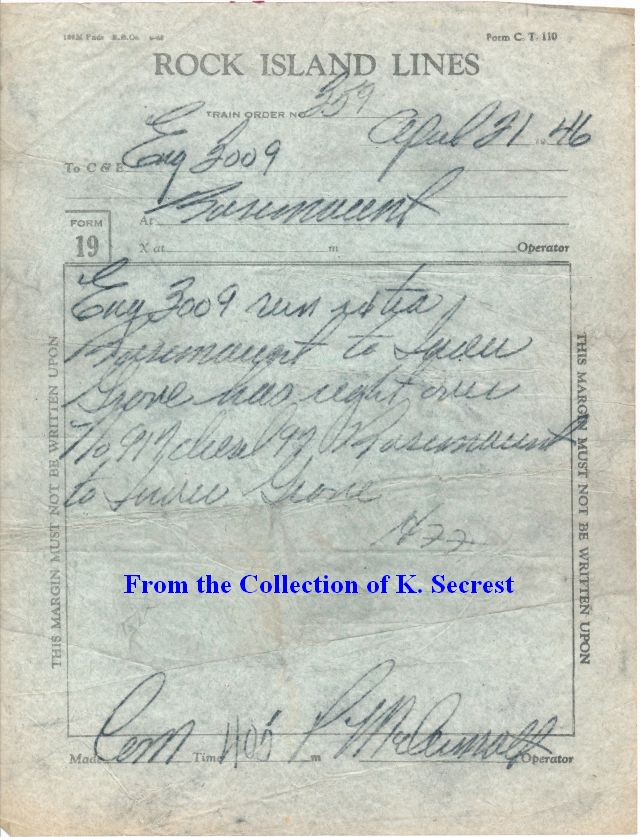 Form C. T. 110
ROCK ISLAND LINES
TRAIN ORDER NO. 359
April 21 1946
To C & E Eng 3009
At Rosemount
FORM
19
X at m Operator
Eng 3009 run extra
Rosemount to Inver
Grove has right over
No 917 Rosemount
to Inver Grove
From the Collection of K. Secrest
THIS MARGIN MUST NOT BE WRITTEN UPON
THIS MARGIN MUST NOT BE WRITTEN UPON
Made Com Time 405 m Operator